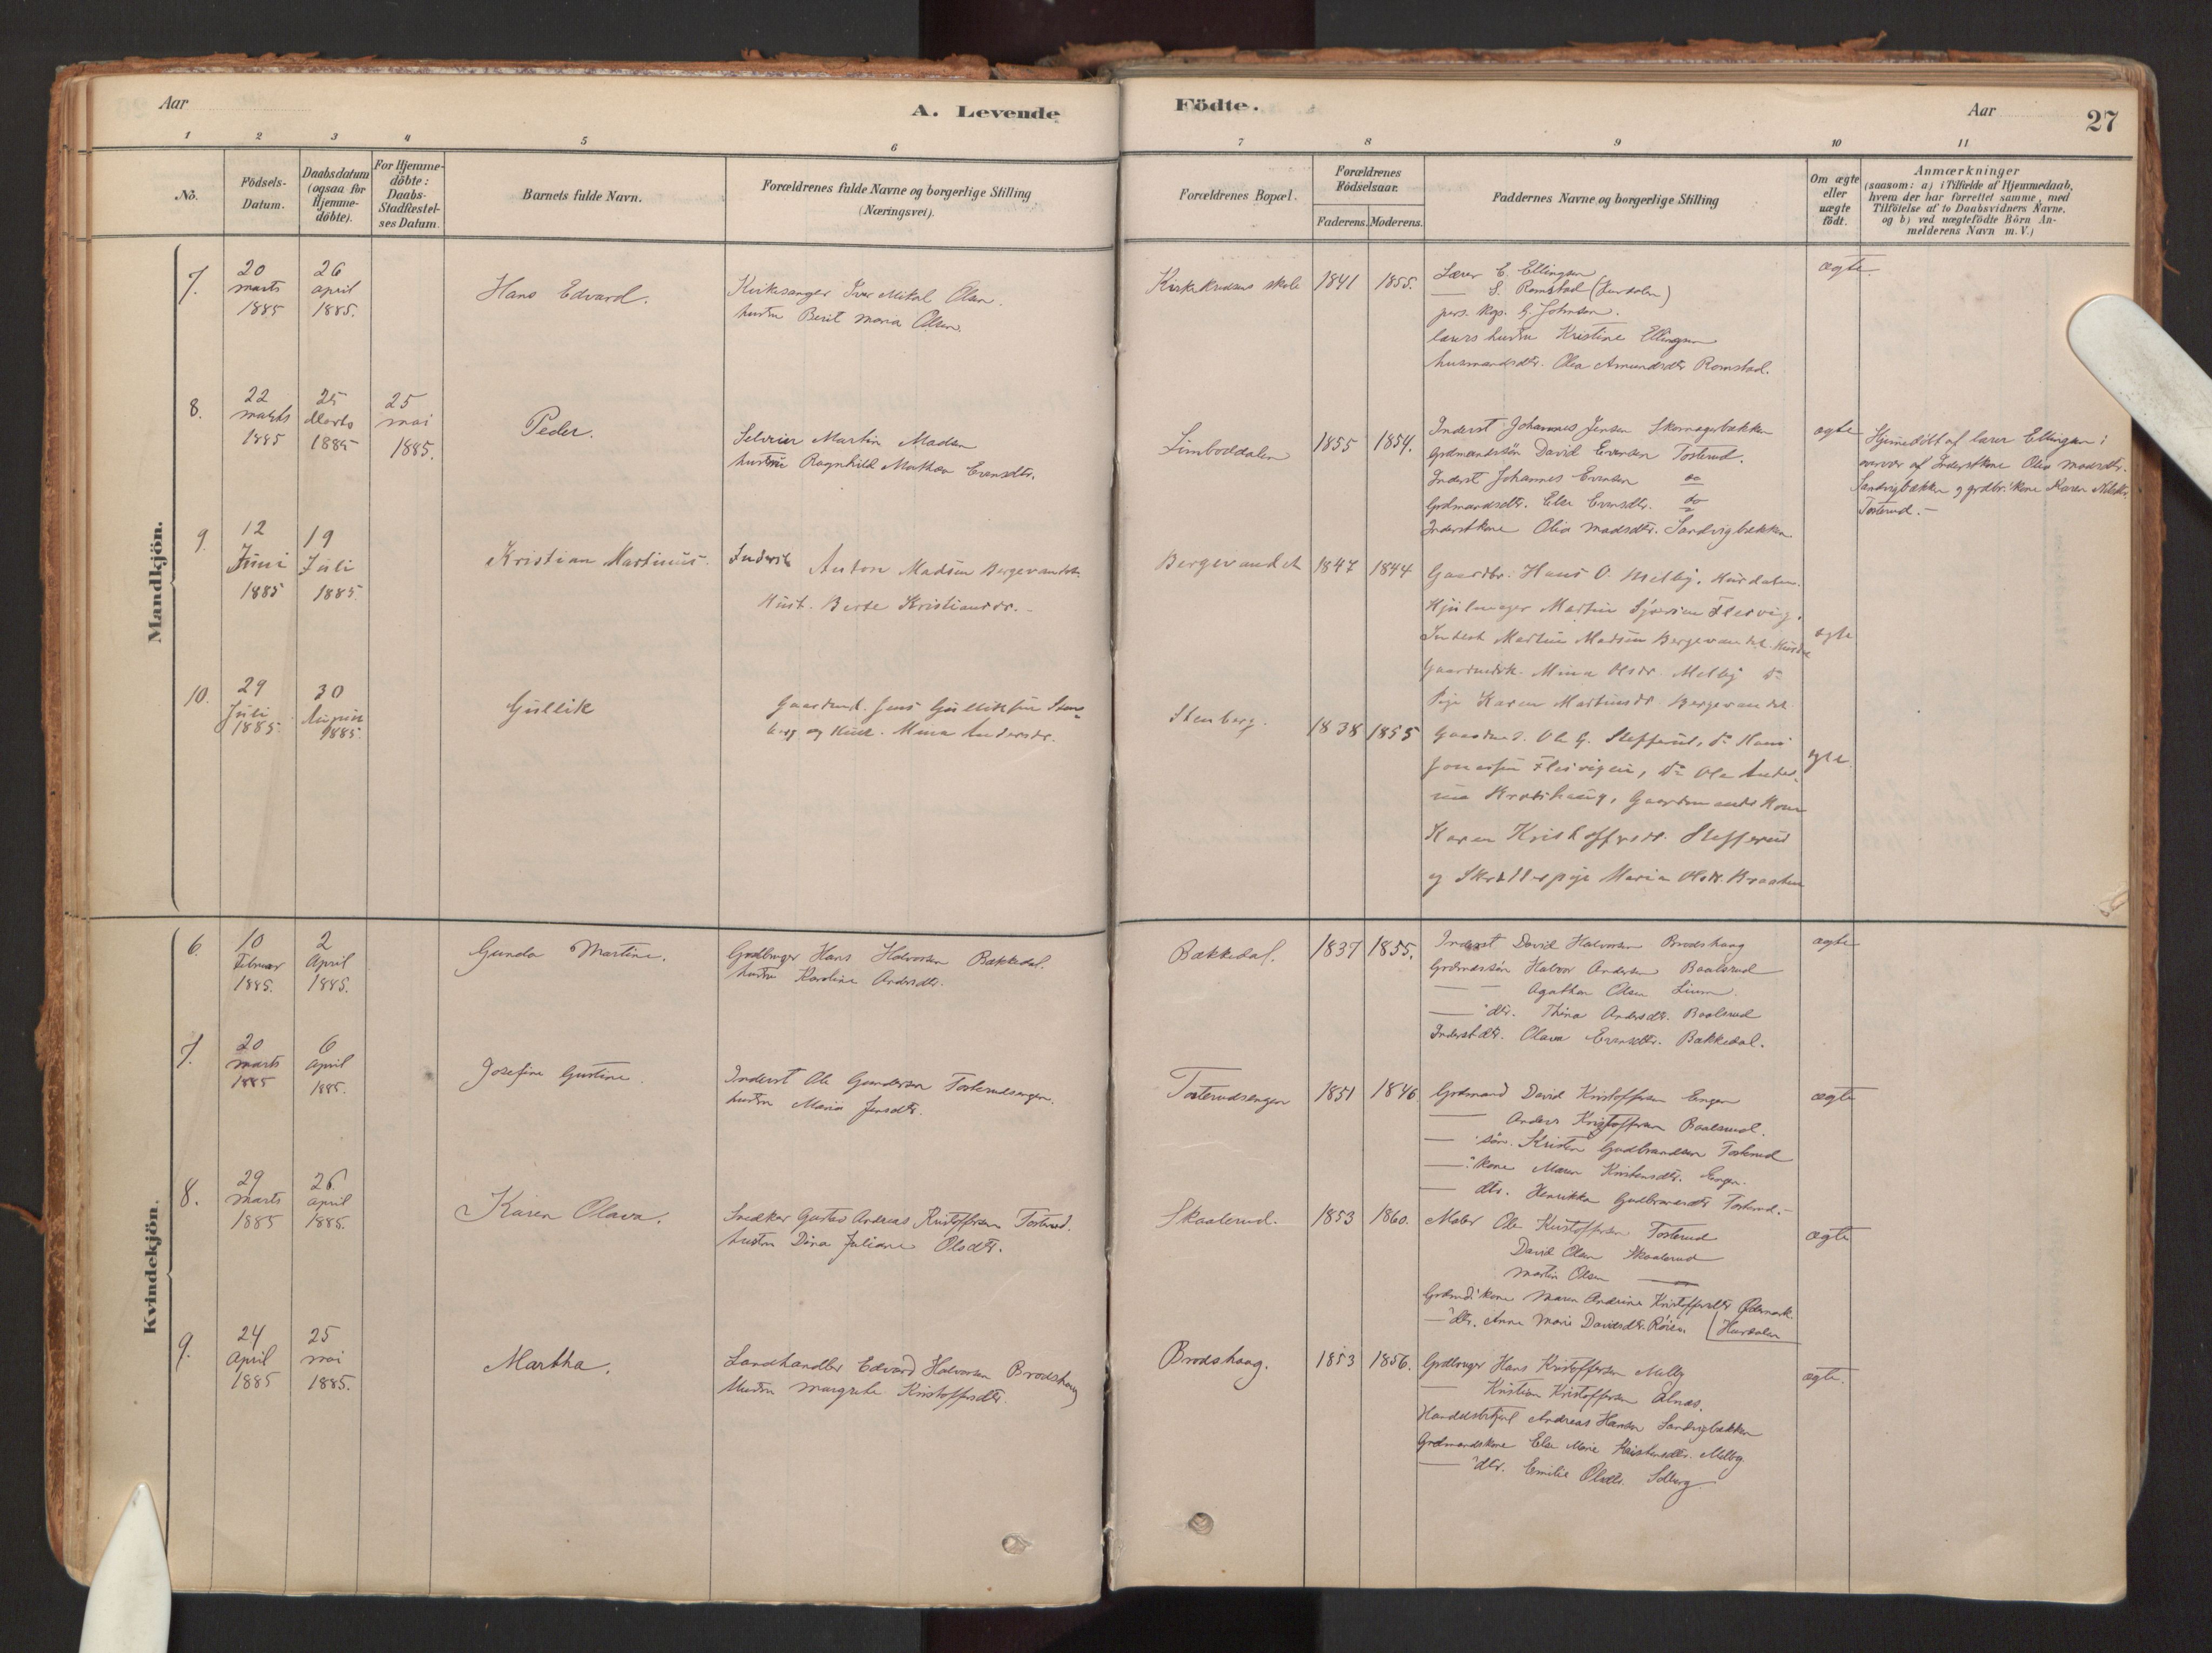 Aar
A. Levende
Födte.
Aar
27
1 2 3 4 5 6 7 8 9 10 11
No.
Födsels-Datum.
Daabsdatum (ogsaa for Hjemme-döbte).
For Hjemme-döbte: Daabs-Stadfæstel-ses Datum.
Barnets fulde Navn.
Forældrenes fulde Navne og borgerlige Stilling (Næringsvei).
Forældrenes Bopæl.
Forældrenes Födselsaar.
Faderens. Moderens.
Faddernes Navne og borgerlige Stilling
Om ægte eller uægte födt.
Anmærkninger
(saasom: a) i Tilfælde af Hjemmedaab,
hvem der har forrettet samme, med
Tilföielse af to Daabsvidners Navne.
og b) ved uægtefödte Börn An-
melderens Navn m.V.)
Mandkjön.
7.
20 marts 1885
26 april 1885.
Hans Edvard.
Kirkesanger Iver Mikal Olsen.
hustru Berit Maria Olsen.
skole
1841 1855.
Lærer E. Ellingsen
— S. Romstad (Hurdalen)
pers. Kap. G. Johnsen.
lærers hustru Kristine Ellingsen
husmandsdtr. Olea Amundsdtr Romstad.
ægte.
8.
22 marts 1885
25 Marts 1885
25 mai 1885.
Peder.
Selveier Martin Madsen
hustru Ragnhild Mathea Evensdtr.
Limboddalen
1855 1854.
Inderst Johannes Jensen Skomagerbækken
Grdmandssön David Evensen Tosterud.
Inderst Johannes Evensen do
Grdmandsdtr. Else Evensdtr. do
Inderstkone Olia Madsdtr. Sandvigbækken
ægte
Hjemedöbt af lærer Ellingsen i
overvær af Inderstkone Olia Madsdtr.
Sandvigbækken og grdbr.'kone Karen Nilsdtr.
Tosterud.—
9.
12 Juni 1885
19 Juli 1885.
Kristian Martinus.
Inderst Anton Madsen Bergevandet.
Hust. Berte Kristiansdr.
Bergevandet
1847 1844
Gaardbr. Hans O. Melby, Hurdalen.
Hjulmager Martin Flesvig.
Inderst Martin Madsen Bergevandet
Mina Olsdr. Melby do
Pige Karen Martinsdr Bergevandet
ægte
10.
29 Juli 1885
30 August 1885.
Gullik
Gaardmd. Jens Gulliksen Sten-
berg og Hust. Mina Andersdr.
Stenberg.
1838 1855
Gaardmd. Ole G. Stefferud, do Hans
Jonassen Flesvigen, do Ole Anders-
Gaardmands Kone
Karen Kristoffersdr. Stefferud
og Maria Olsdr. Braaten
ægte.
Kvindekjön.
6.
10 Februar 1885.
2 April 1885.
Gunda Martine.
Grdbruger Hans Halvorsen Bækkedal.
hustru Karoline Andersdtr.
Bækkedal.
1837 1855.
Inderst David Halvorsen Brodshaug
Grdmdssön Halvor Andersen Baalsrud
— — Agathon Olsen Lium
— 'dtr. Thina Andersdtr. Baalsrud
Inderstdtr. Olava Evensdtr. Bækkedal.
ægte
7.
20 marts 1885
6 april 1885.
Josefine Gustine.
Inderst Ole Gundersen Tosterudsengen.
hustru Maria Jensdtr.
Tosterudsengen
1851 1846
Grdmand David Kristoffersen Engen
— Anders Kristoffersen Baalsrud.
— 'sön. Kristen Gudbrandsen Tosterud
—'kone Maren Kristensdtr. Engen.
— dtr. Henrikka Gudbrandsdtr Tosterud.—
ægte
8.
29 Marts 1885
26. april 1885.
Karen Olava.
Snedker Gustav Andreas Kristoffersen Tosterud.
hustru Dina Juliane Olsdtr.
Skaalerud.
1853 1860.
Maler Ole Kristoffersen Tosterud
David Olsen Skaalerud
Martin Olsen —
Grdmds'kone Maren Andrine Kristoffersdtr Ödemark
—'dtr. Anne Marie Davidsdtr. Röisen Hurdalen
ægte
9.
24 April 1885
25 mai 1885.
Martha.
Landhandler Edvard Halvorsen Brodshaug
Hustru Margrethe Kristoffersdtr.
Brodshaug.
1853 1856.
Grdbruger Hans Kristoffersen Melby
— Kristian Kristoffersen Alnæs.
Andreas Hansen Sandvigbækken
Grdmandskone Else Marie Kristensdtr. Melby
— 'dtr. Emilie Olsdtr. Solberg
ægte.